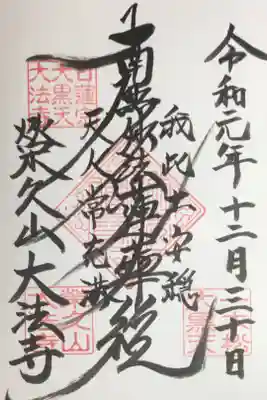 令和元年十二月三十日
我此土安穏
南無妙法蓮華経
天人常充満
榮久山大法寺
日蓮宗
大黒天
大法寺
榮久山